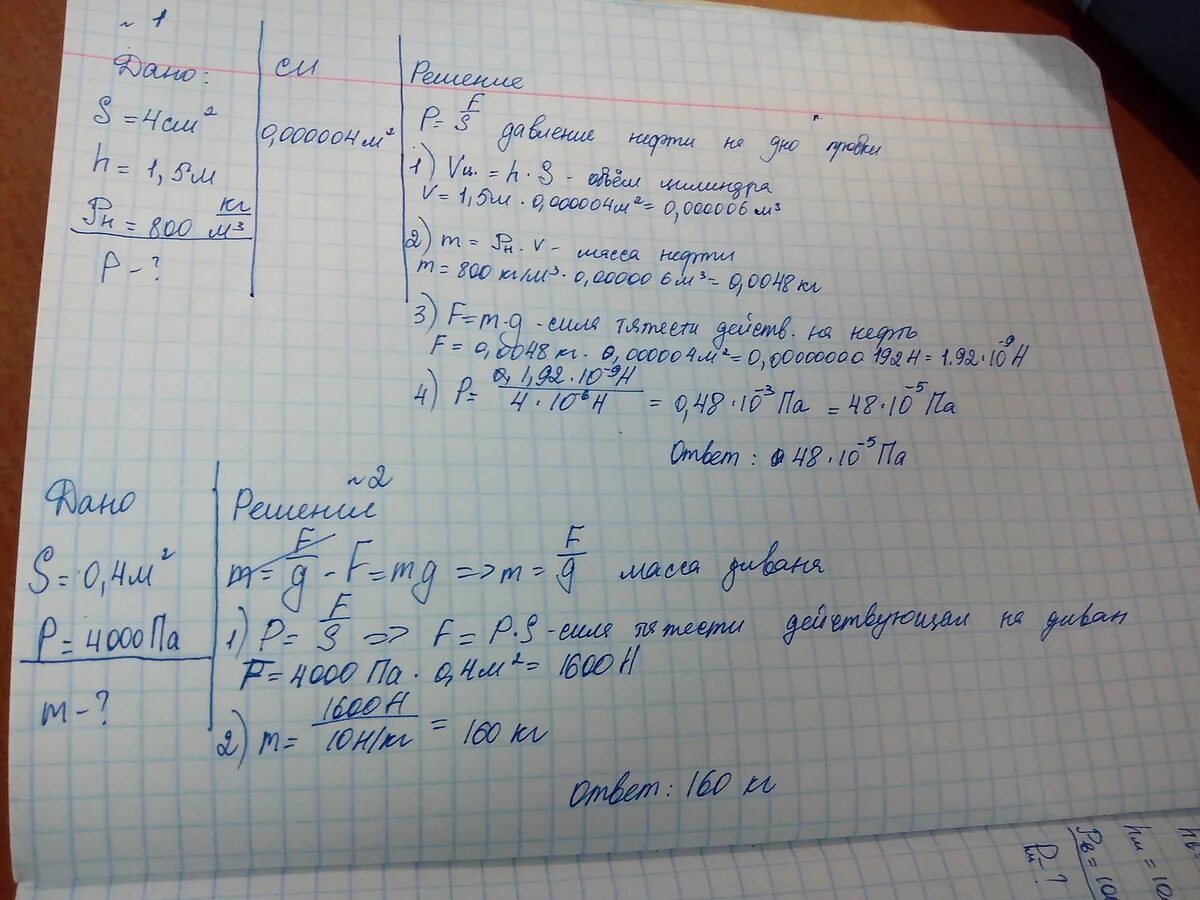 ~ 1
Дано:
S = 4см²
h = 1,5м
Рн = 800 кг/м³
P - ?
СИ
0,000004м²
Решение
P = F/S давление нефти на дно
1) Vц. = h · S - объём цилиндра
V = 1,5м · 0,000004м² = 0,000006м³
2) m = Рн · v - масса нефти
m = 800 кг/м³ · 0,000006м³ = 0,0048кг
3) F = m · g - сила тяжести действ. на нефть
F = 0,0048кг · 0,000004м² = 0,0000000192Н = 1.92·10⁻⁹Н
4) P = 1,92·10⁻⁹Н / 4·10⁻⁶Н = 0,48·10⁻³Па = 48·10⁻⁵Па
Ответ: 48·10⁻⁵Па
~2
Дано
S = 0,4м²
P = 4000Па
m - ?
Решение
m = F/g - F = mg => m = F/g масса дивана
1) P = F/S => F = P·S - сила тяжести действующая на диван
F = 4000Па · 0,4м² = 1600Н
2) m = 1600Н / 10Н/кг = 160 кг
Ответ: 160 кг
hв=
hм = 10
Рв = 10
Рм - ?